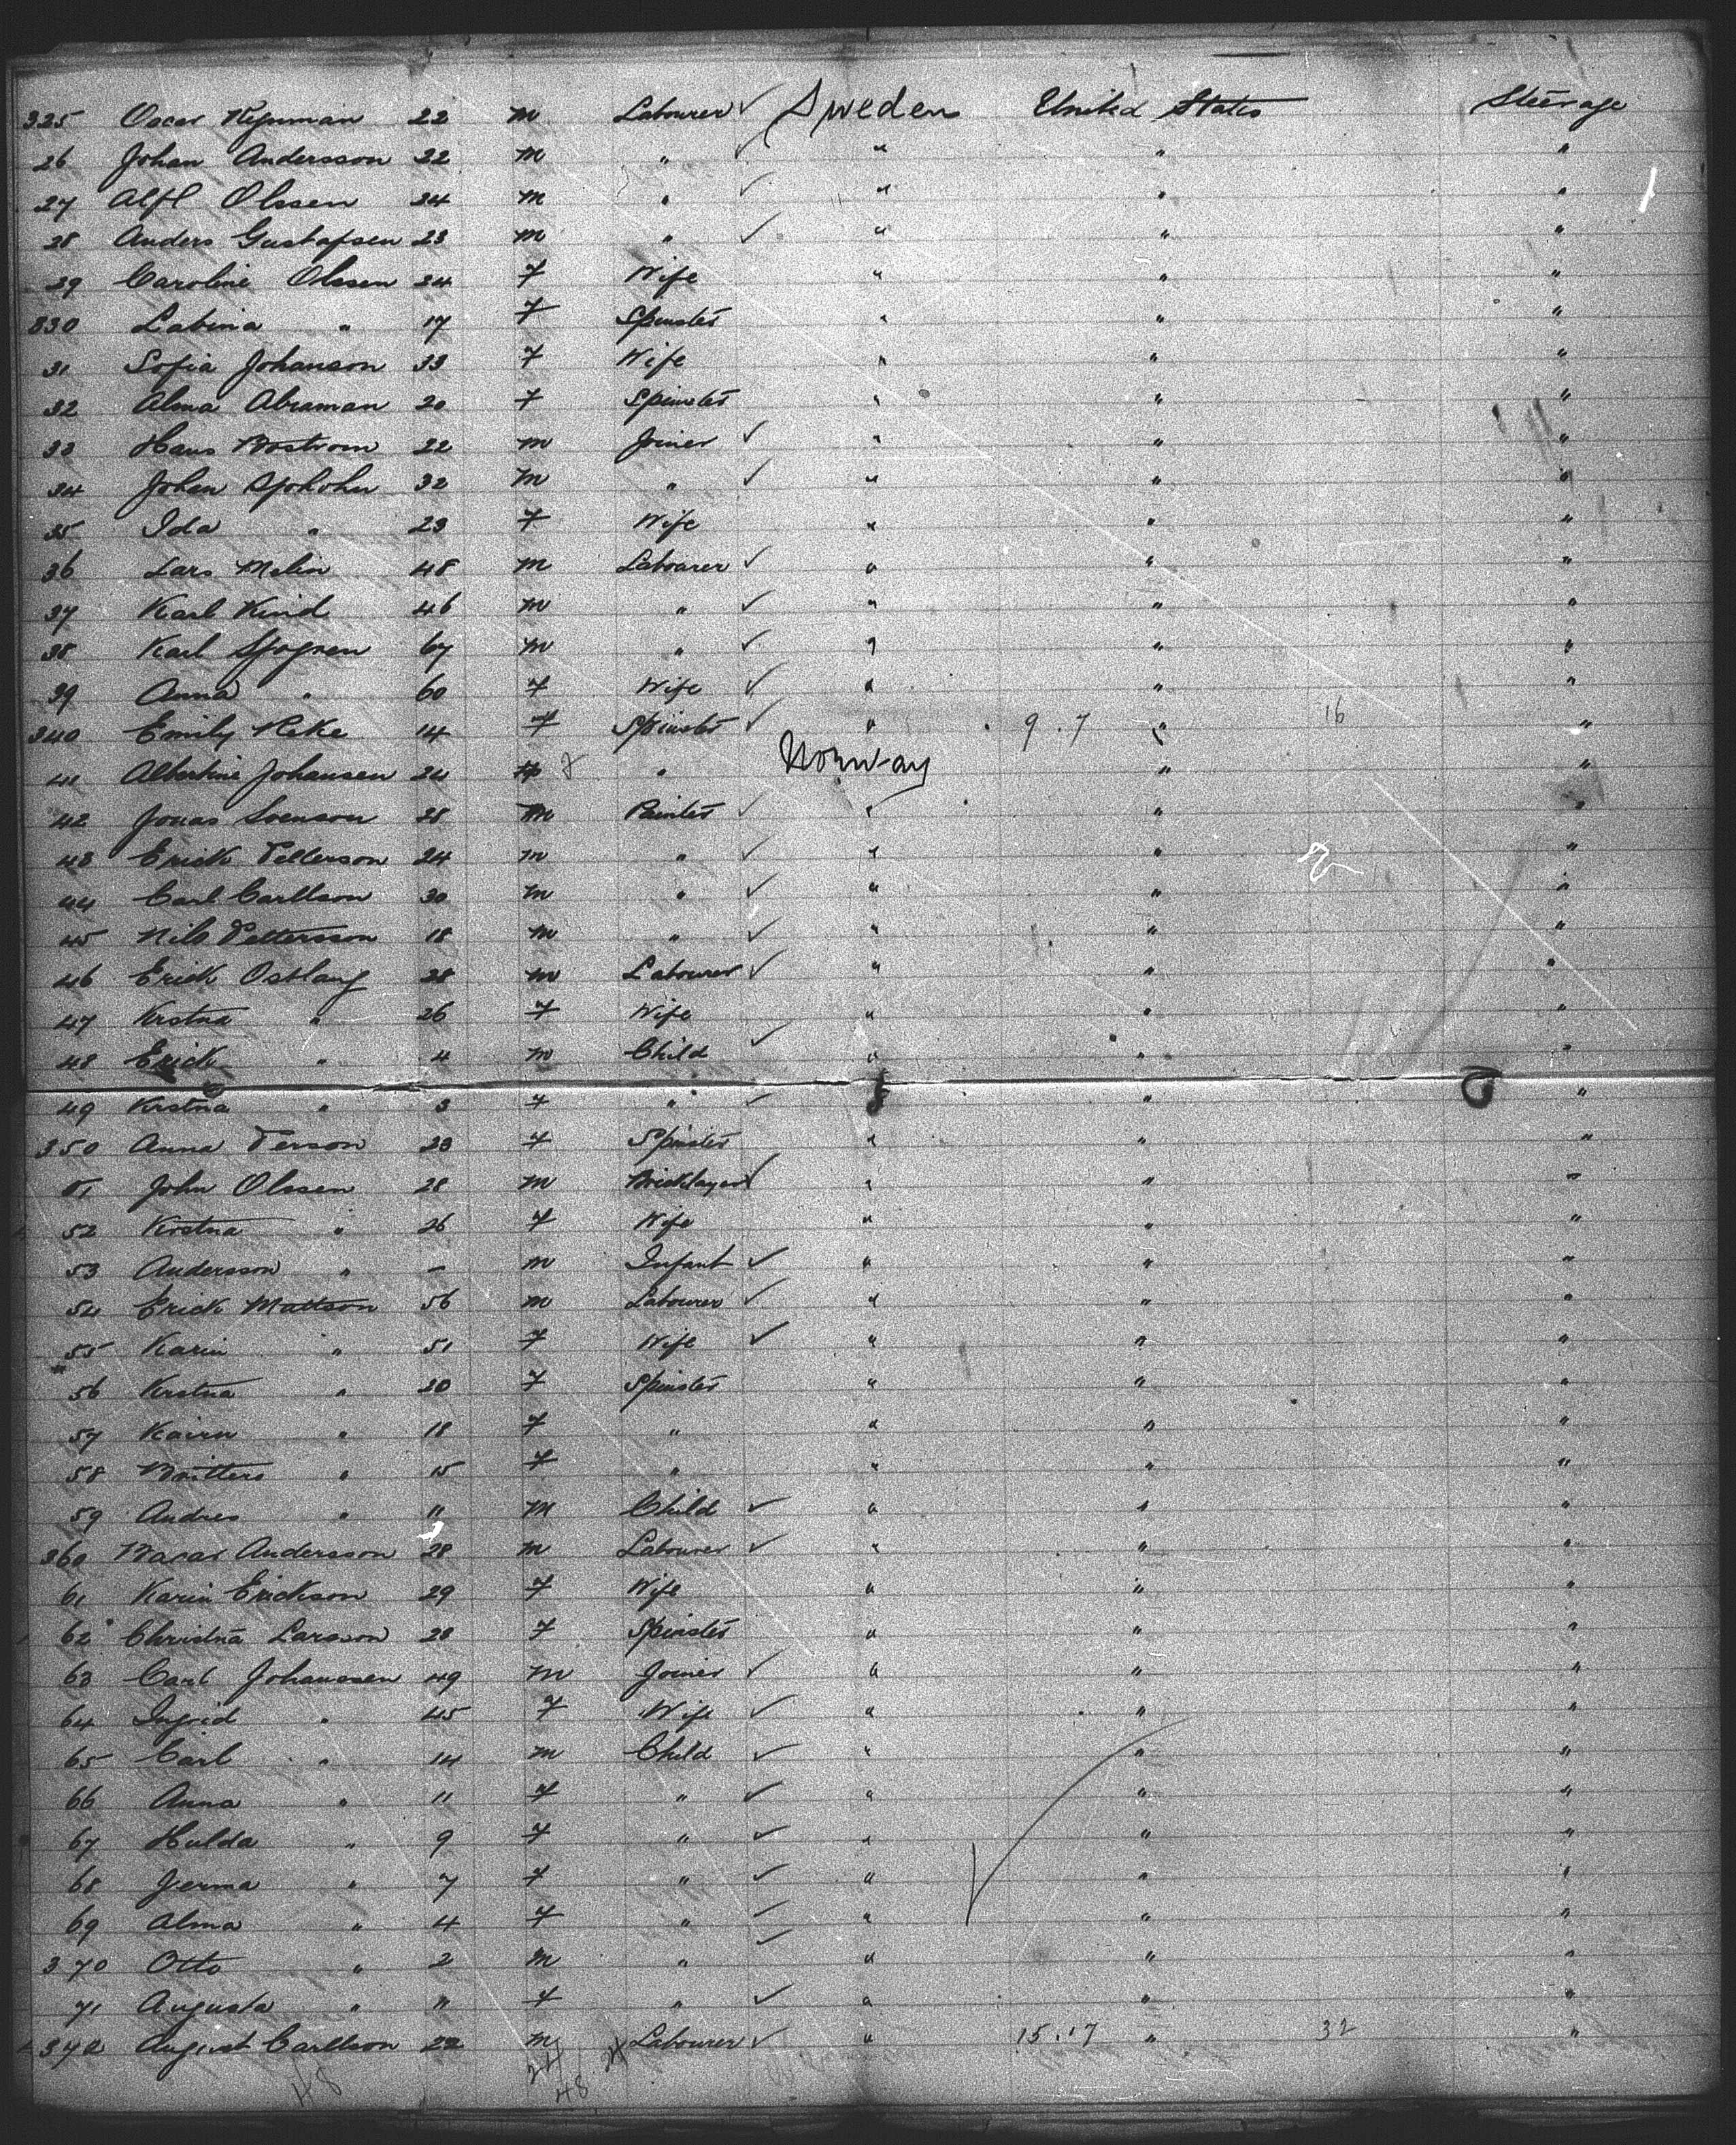 325 Oscar 22 m Labourer ✓ Sweden United States Steerage
26 Johan Andersson 22 m " ✓ " " "
27 Alfl Olssen 24 m " ✓ " " "
28 Anders Gustafsen 23 m " ✓ " " "
29 Caroline Olssen 24 f Wife " " "
330 Labina " 17 f Spinster " " "
31 Sofia Johanson 33 f Wife " " "
32 Alma Abraman 20 f Spinster " " "
33 Hans Bostrom 22 m Joiner ✓ " " "
34 Johan 32 m " ✓ " " "
35 Ida " 23 f Wife " " "
36 Lars Melin 48 m Labourer ✓ " " "
37 Karl Kind 46 m " ✓ " " "
38 Karl Sjogren 67 m " ✓ " " "
39 Anna " 60 f Wife ✓ " " "
340 Emily 14 f Spinster ✓ " 9 . 7 " 16 "
41 Albertine Johansen 24 f " Norway " "
42 Jonas Svenson 28 m Painter ✓ " " "
43 Erick Petterson 24 m " ✓ " " "
44 Carl Carllson 30 m " ✓ " " "
45 Nils Pettersson 18 m " ✓ " " "
46 Erick Ostlang 28 m Labourer ✓ " " "
47 Krstna " 26 f Wife " " "
48 Erick " 4 m Child ✓ " " "
49 Krstna " 3 f " ✓ " " "
350 Anna Person 23 f Spinster " " "
51 John Olssen 28 m Bricklayer ✓ " " "
52 Krstna " 26 f Wife " " "
53 Andersson " - m Infant ✓ " " "
54 Erick Mattson 56 m Labourer ✓ " " "
55 Karin " 51 f Wife ✓ " " "
56 Krstna " 20 f Spinster " " "
57 Kairn " 18 f " " " "
58 " 15 f " " " "
59 Andres " 11 m Child ✓ " " "
360 Andersson 28 m Labourer ✓ " " "
61 Karin Erickson 29 f Wife " " "
62 Christna Larsson 28 f Spinster " " "
63 Carl Johanssen 49 m Joiner ✓ " " "
64 Ingrid " 45 f Wife ✓ " " "
65 Carl " 14 m Child ✓ " " "
66 Anna " 11 f " ✓ " " "
67 Hulda " 9 f " ✓ " " "
68 Jerma " 7 f " ✓ " " "
69 Alma " 4 f " ✓ " " "
370 Otto " 2 m " ✓ " " "
71 Augusta " " f " ✓ " " "
372 August Carllson 22 m Labourer ✓ " 15 . 17 " 32 "
48 24 24
48